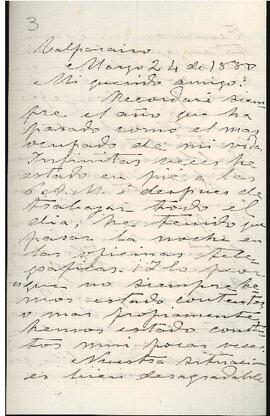 3
Valparaiso
Marzo 24 de 1880
Mi querido amigo:
Recordaré siem-
pre el año que ha
pasado como el mas
ocupado de mi vida.
Infinitas veces he
estado en pié a las
6 A. M. i despues de
trabajar todo el
dia, he tenido que
pasar la noche en
las oficinas tele-
gráficas. I lo peor
es que no siempre he-
mos estado contentos
o mas propiamente
hemos estado conten-
tos mui pocas veces.
Nuestra situacion
es bien desagradable